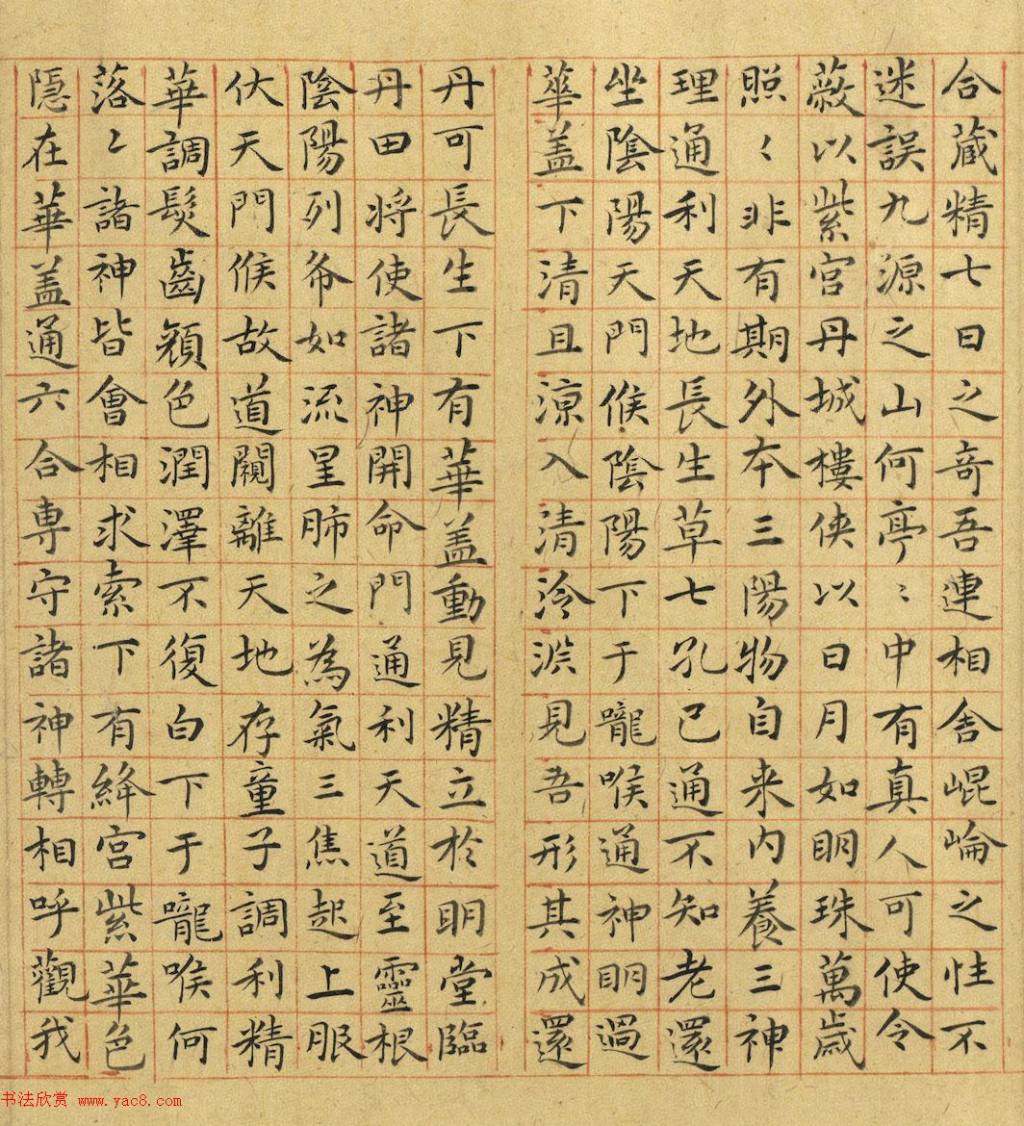 合藏精七日之竒吾連相舎崐崘之性不
迷誤九源之山何亭〻中有真人可使令
蔽以紫宮丹城樓俠以日月如眀珠萬歲
照〻非有期外夲三陽物自来内養三神
理通利天地長生草七孔已通不知老還
坐陰陽天門候陰陽下于嚨喉通神眀過
華盖下清且涼入清泠淵見吾形其成還
丹可長生下有華盖動見精立於眀堂臨
丹田将使諸神開命門通利天道至靈根
陰陽列布如流星肺之為氣三焦起上服
伏天門候故道闚離天地存童子調利精
華調髮齒顔色潤澤不復白下于嚨喉何
落〻諸神皆會相求索下有絳宮紫華色
隱在華盖通六合専守諸神轉相呼觀我
书法欣赏 www.yac8.com